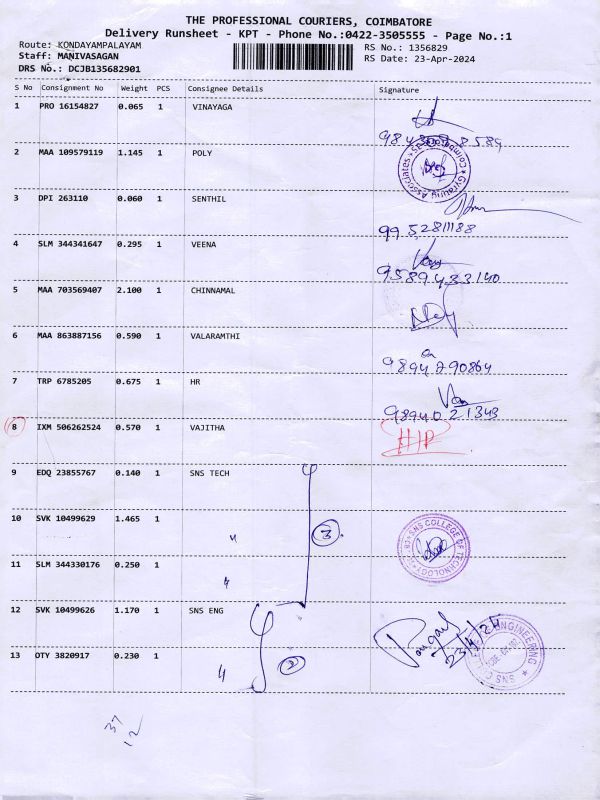 THE PROFESSIONAL COURIERS, COIMBATORE
Delivery Runsheet - KPT - Phone No.:0422-3505555 - Page No.:1
Route: KONDAYAMPALAYAM
Staff: MANIVASAGAN
DRS No.: DCJB135682901
RS No.: 1356829
RS Date: 23-Apr-2024
S No Consignment No Weight PCS Consignee Details Signature
1 PRO 16154827 0.065 1 VINAYAGA
2 MAA 109579119 1.145 1 POLY
3 DPI 263110 0.060 1 SENTHIL
9952811188
4 SLM 344341647 0.295 1 VEENA
9589433140
5 MAA 703569407 2.100 1 CHINNAMAL
6 MAA 863887156 0.590 1 VALARAMTHI
9894290864
7 TRP 6785205 0.675 1 HR
9894021343
8 IXM 506262524 0.570 1 VAJITHA
9 EDQ 23855767 0.140 1 SNS TECH
10 SVK 10499629 1.465 1 "
3
SNS COLLEGE OF TECHNOLOGY
11 SLM 344330176 0.250 1 "
12 SVK 10499626 1.170 1 SNS ENG
23/4/24
13 OTY 3820917 0.230 1 "
2